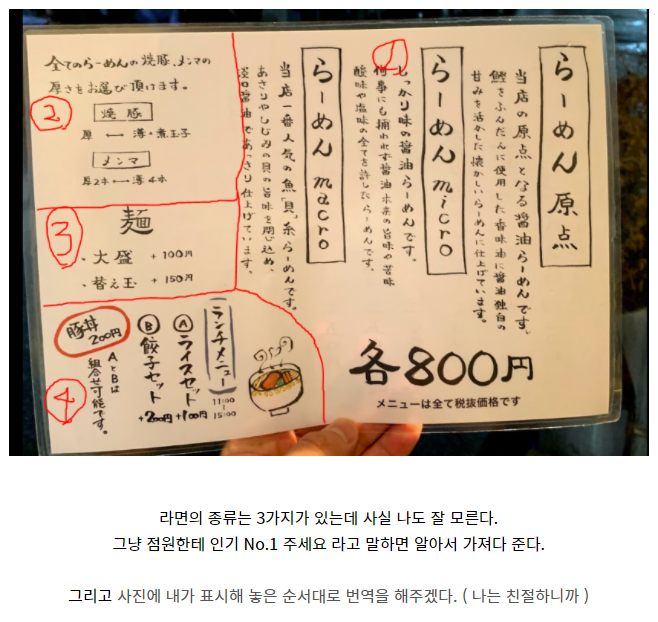 らーめん 原点
当店の原点となる醤油らーめんです。
鰹をふんだんに使用した香味油に醤油独自の
甘みを活かした懐かしいらーめんに仕上げています。
1
らーめん micro
しっかり味の醤油らーめんです。
何事にも捕われず醤油本来の旨味や苦味
酸味や塩味の全てを許したらーめんです。
らーめん macro
当店一番人気の魚「貝」系らーめんです。
あさりやしじみの貝の旨味を閉じ込め、
淡口醤油であっさり仕上げています。
各800円
メニューは全て税抜価格です
2
全てのらーめんの焼豚、メンマの
厚さをお選び頂けます。
焼豚
厚 ⟷ 薄・煮玉子
メンマ
厚2本 ⟷ 薄4本
3
麺
・大盛 +100円
・替え玉 +150円
4
ランチメニュー
11:00
15:00
Ⓐライスセット +100円
Ⓑ餃子セット +200円
AとBは
組合せ可能です。
豚丼
200円
라면의 종류는 3가지가 있는데 사실 나도 잘 모른다.
그냥 점원한테 인기 No.1 주세요 라고 말하면 알아서 가져다 준다.
그리고 사진에 내가 표시해 놓은 순서대로 번역을 해주겠다. ( 나는 친절하니까 )